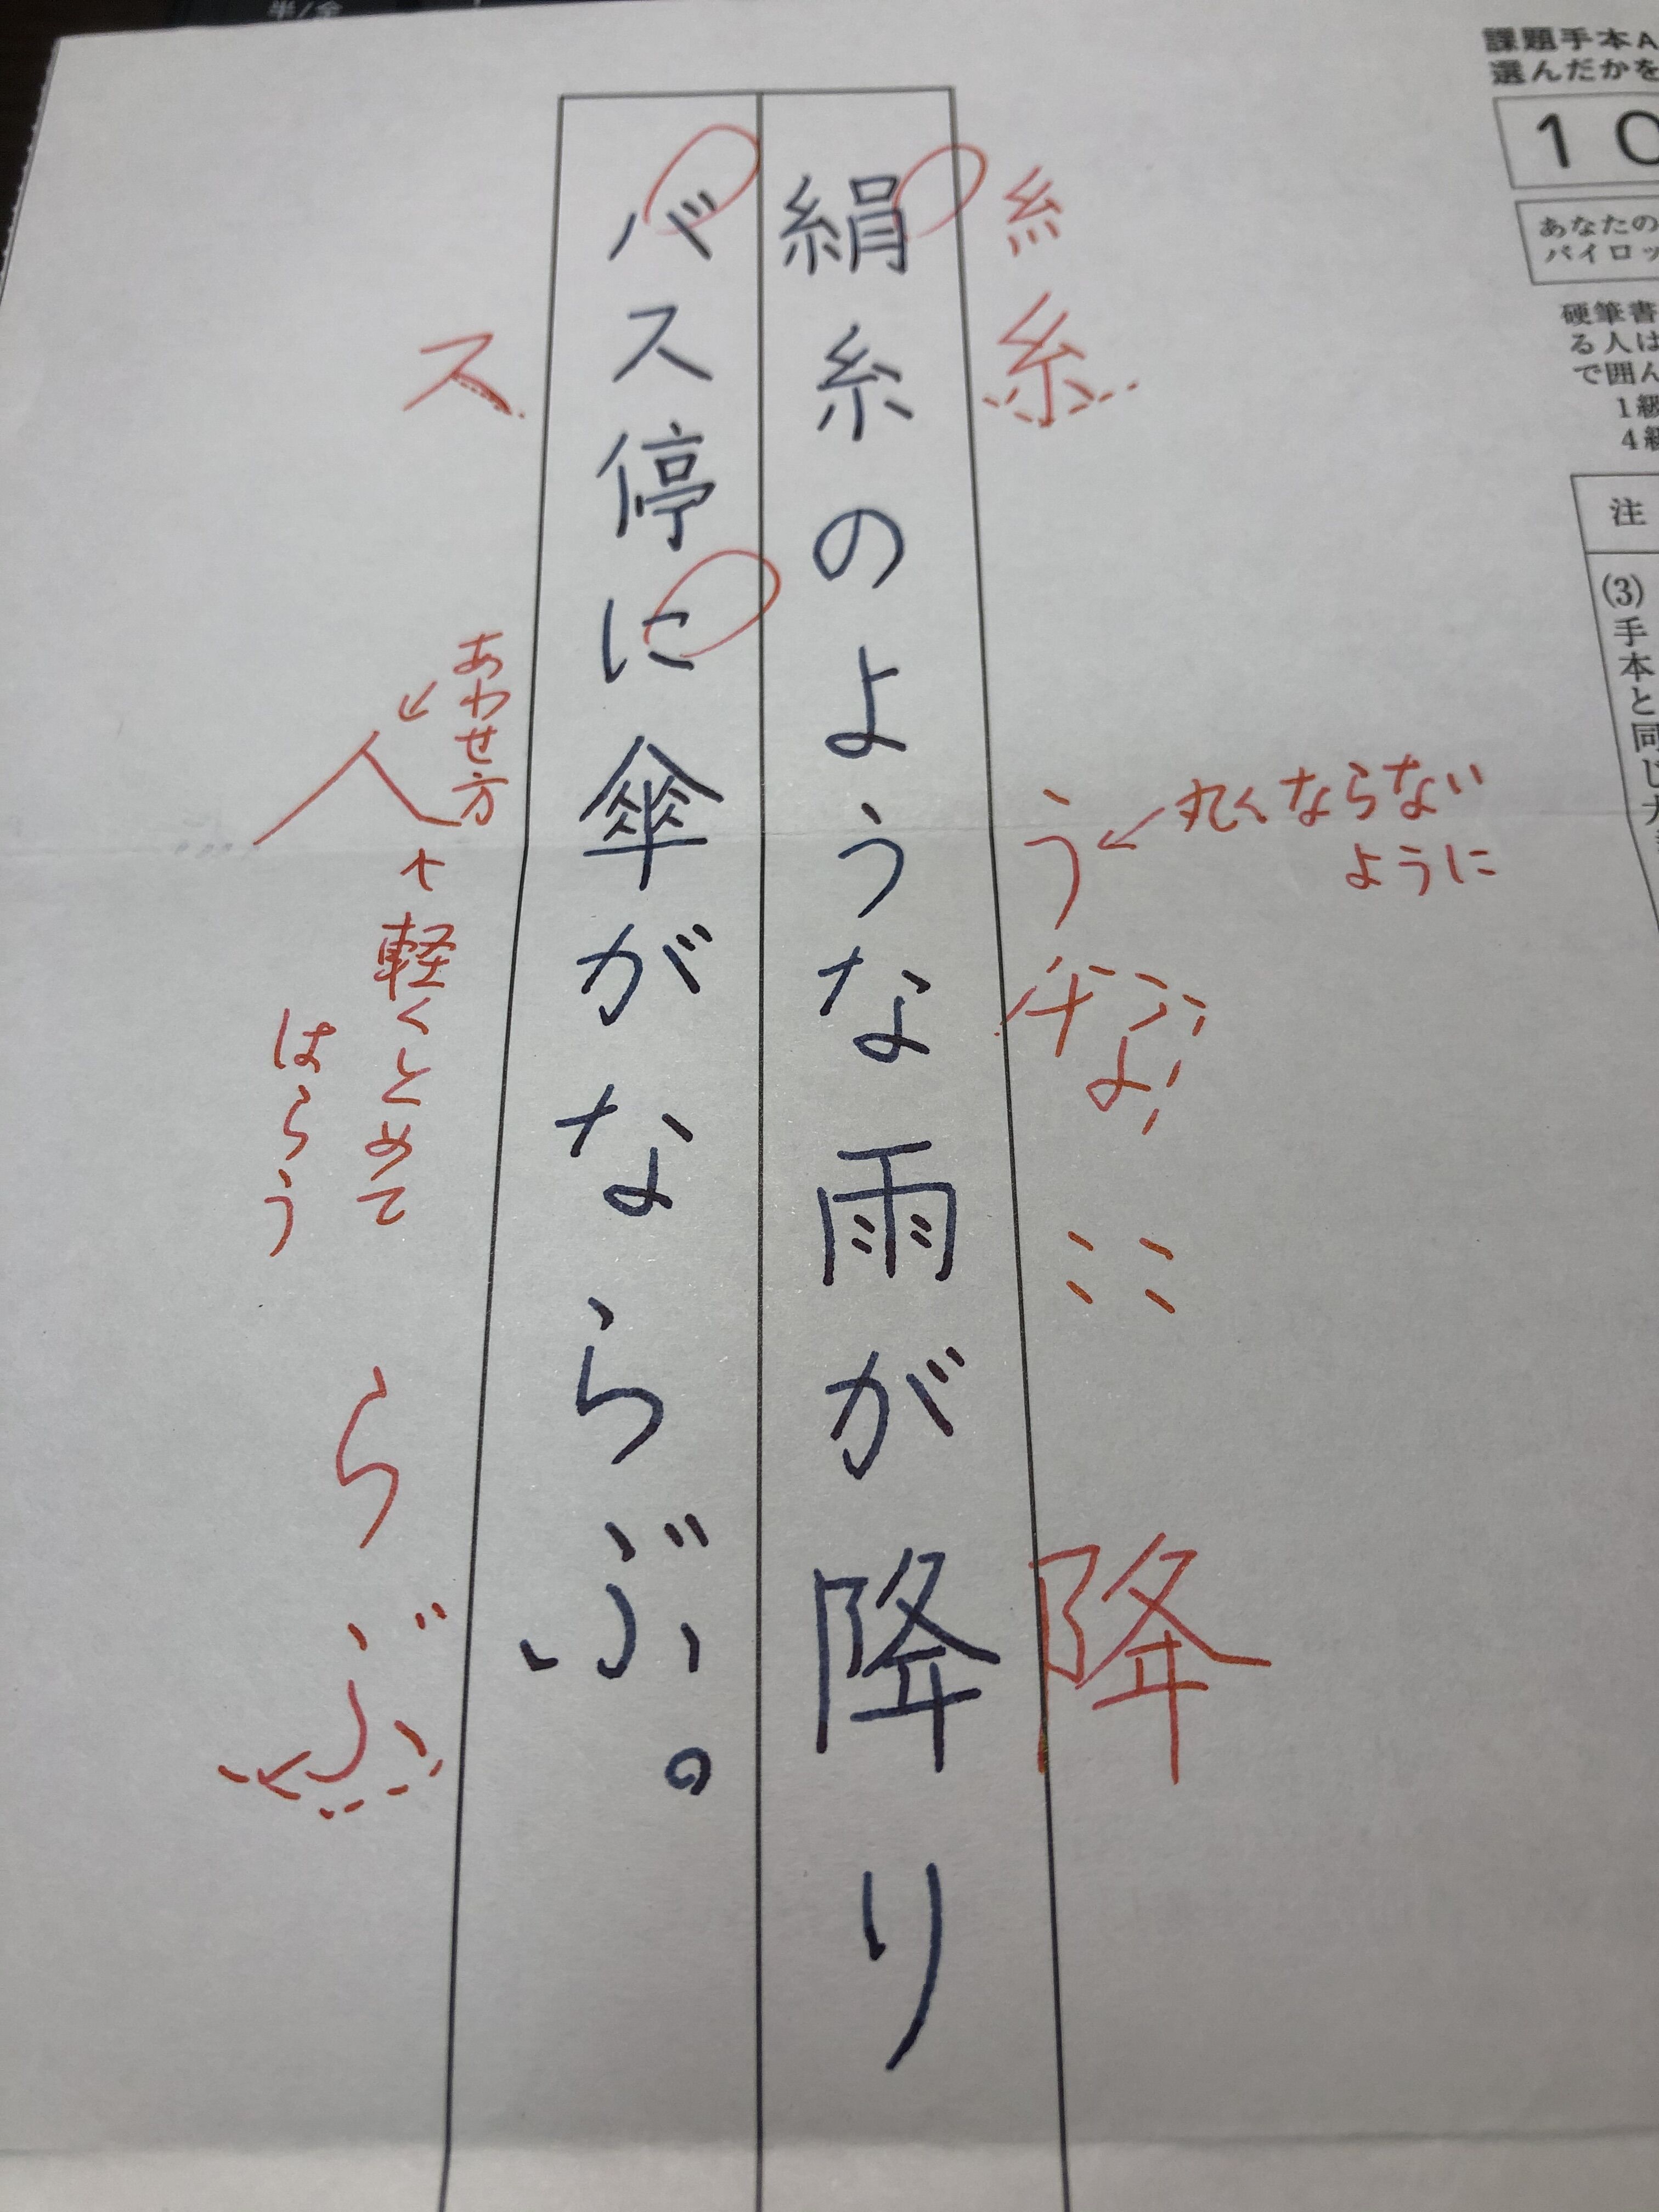 半/全
課題手本A
選んだかを
10
あなたの
パイロッ
硬筆書
る人は
で囲ん
1級
4級
注
(3)手本と同じ大
糸
糸
う
丸くならない
ように
な
降
絹糸のような雨が降り
バス停に傘がならぶ。
ス
あわせ方
人
軽くとめて
はらう
ら
ぶ